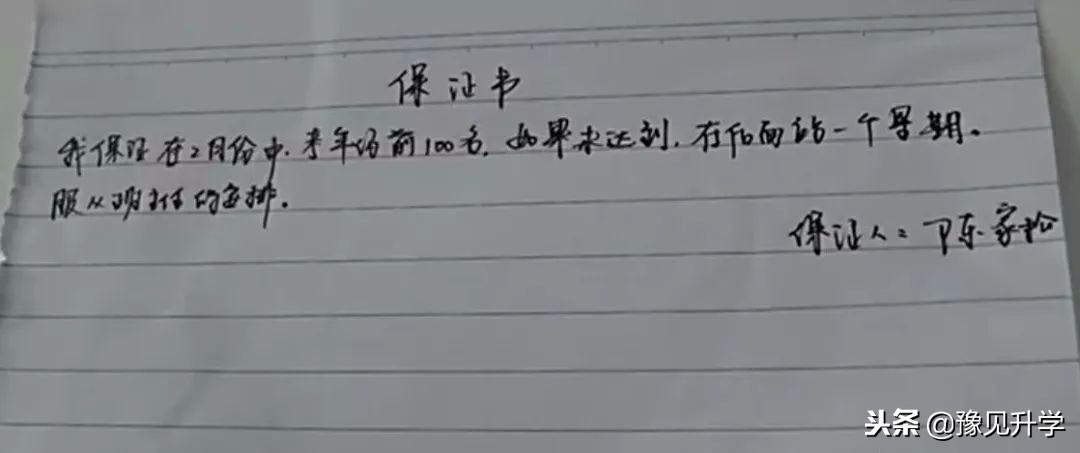 保证书
我保证在2月份中.考年级前100名.如果未达到.在后面站一个星期。
服从班主任的安排。
保证人:陈家松
头条@豫见升学